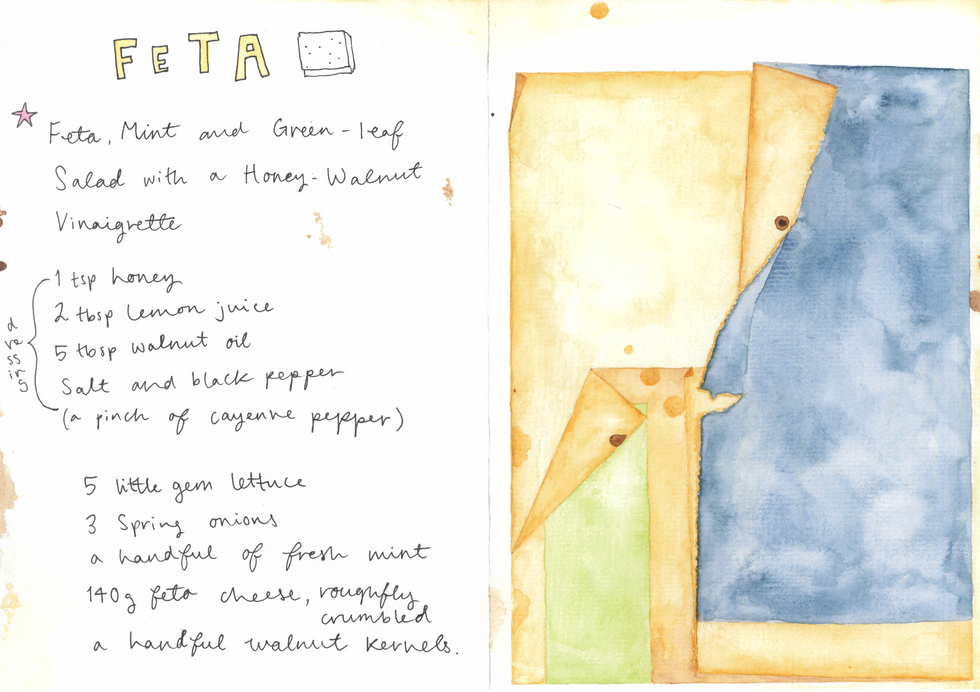 FETA
Feta, Mint and Green-leaf
Salad with a Honey-Walnut
Vinaigrette
dressing
1 tsp honey
2 tbsp lemon juice
5 tbsp walnut oil
Salt and black pepper
(a pinch of cayenne pepper)
5 little gem lettuce
3 Spring onions
a handful of fresh mint
140g feta cheese, roughfly
crumbled
a handful walnut kernels.